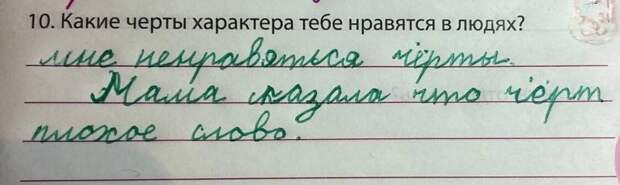 10. Какие черты характера тебе нравятся в людях?
мне ненравяться чёрты.
Мама сказала что чёрт
плохое слово.